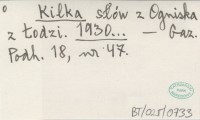 Kilka słów z Ogniska
z Łodzi. 1930... — Gaz.
Podh. 18, nr 47.
BT/001/0733